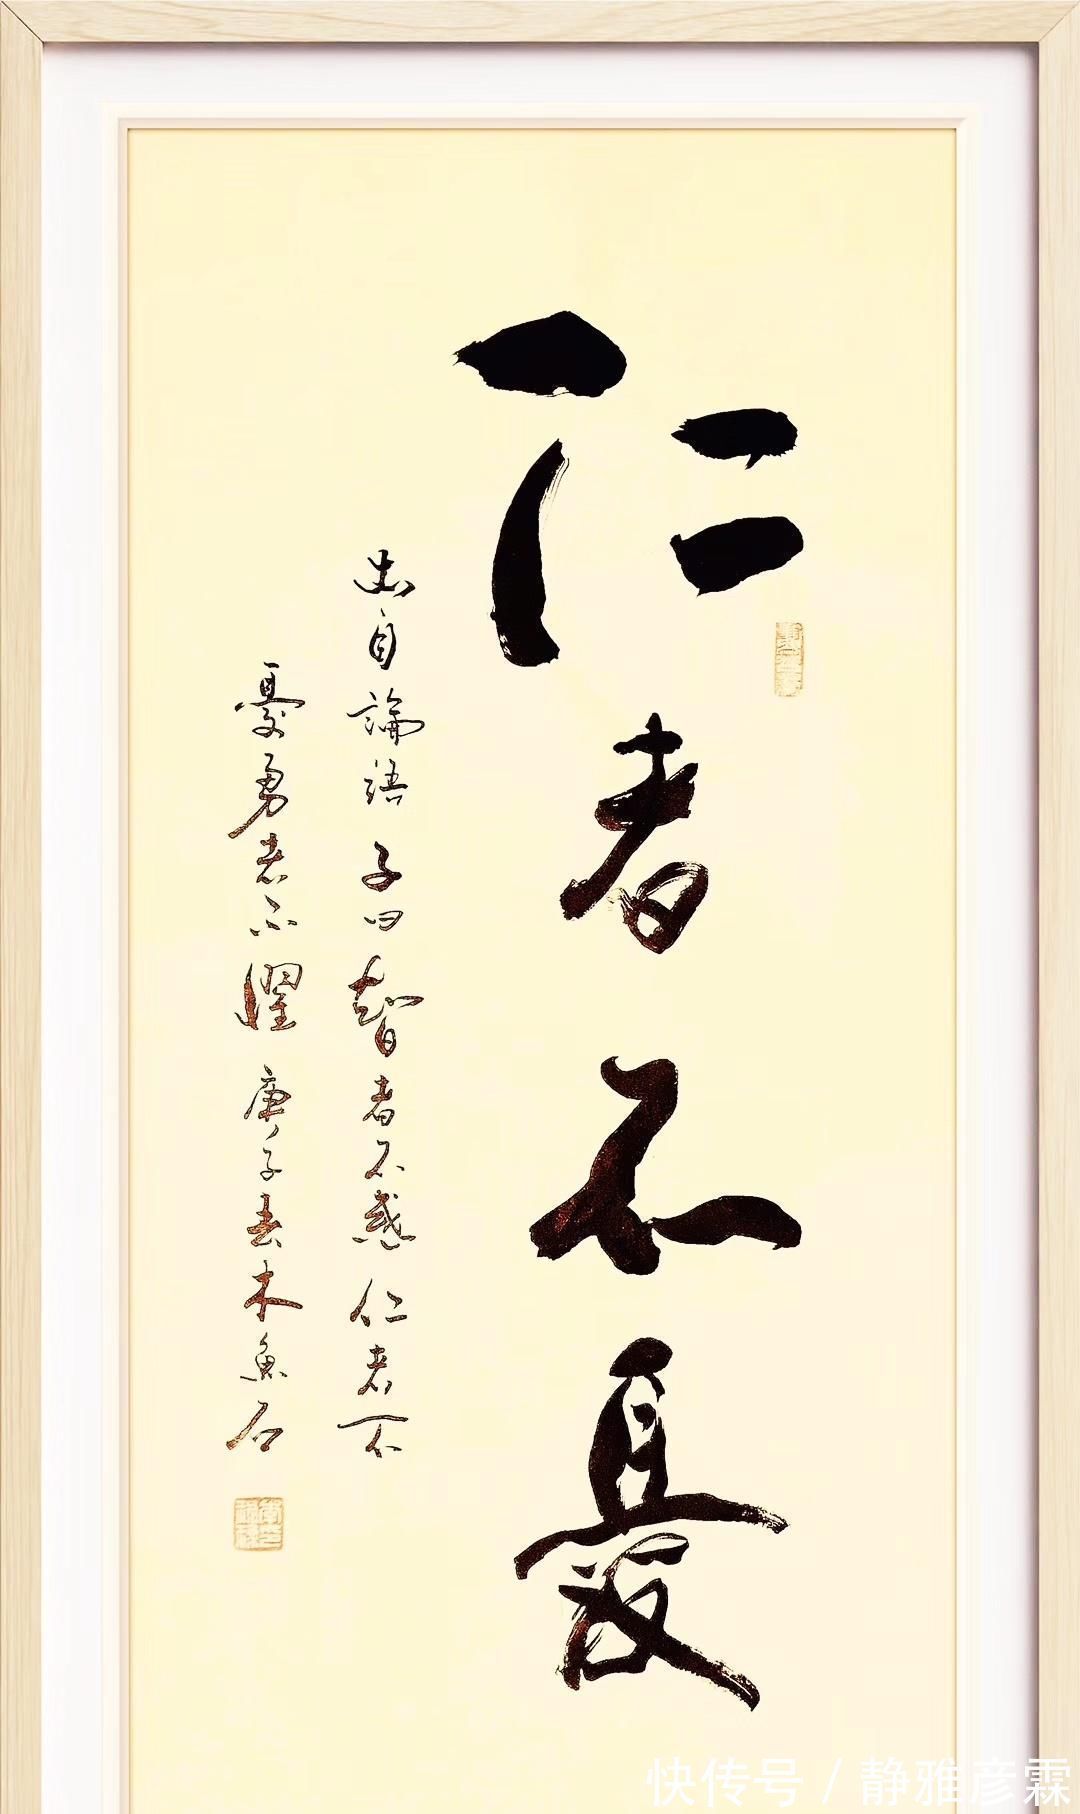 仁者不憂
出自論語子曰智者不惑仁者不
憂勇者不懼庚子春木魚石
快传号/静雅彦霖